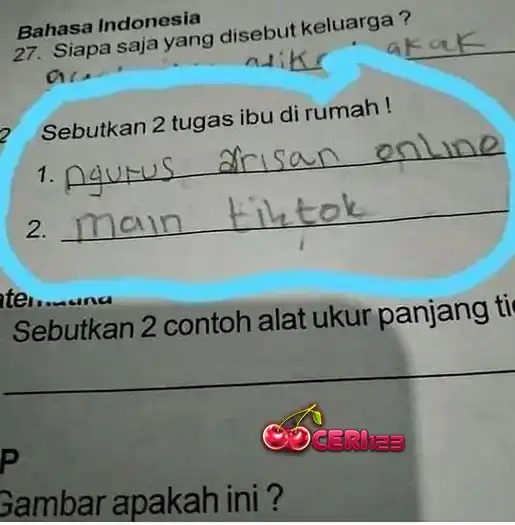 Bahasa Indonesia
27. Siapa saja yang disebut keluarga ?
akak
Sebutkan 2 tugas ibu di rumah !
1. ngurus arisan online
2. main tiktok
Sebutkan 2 contoh alat ukur panjang
CERI123
P
Gambar apakah ini ?